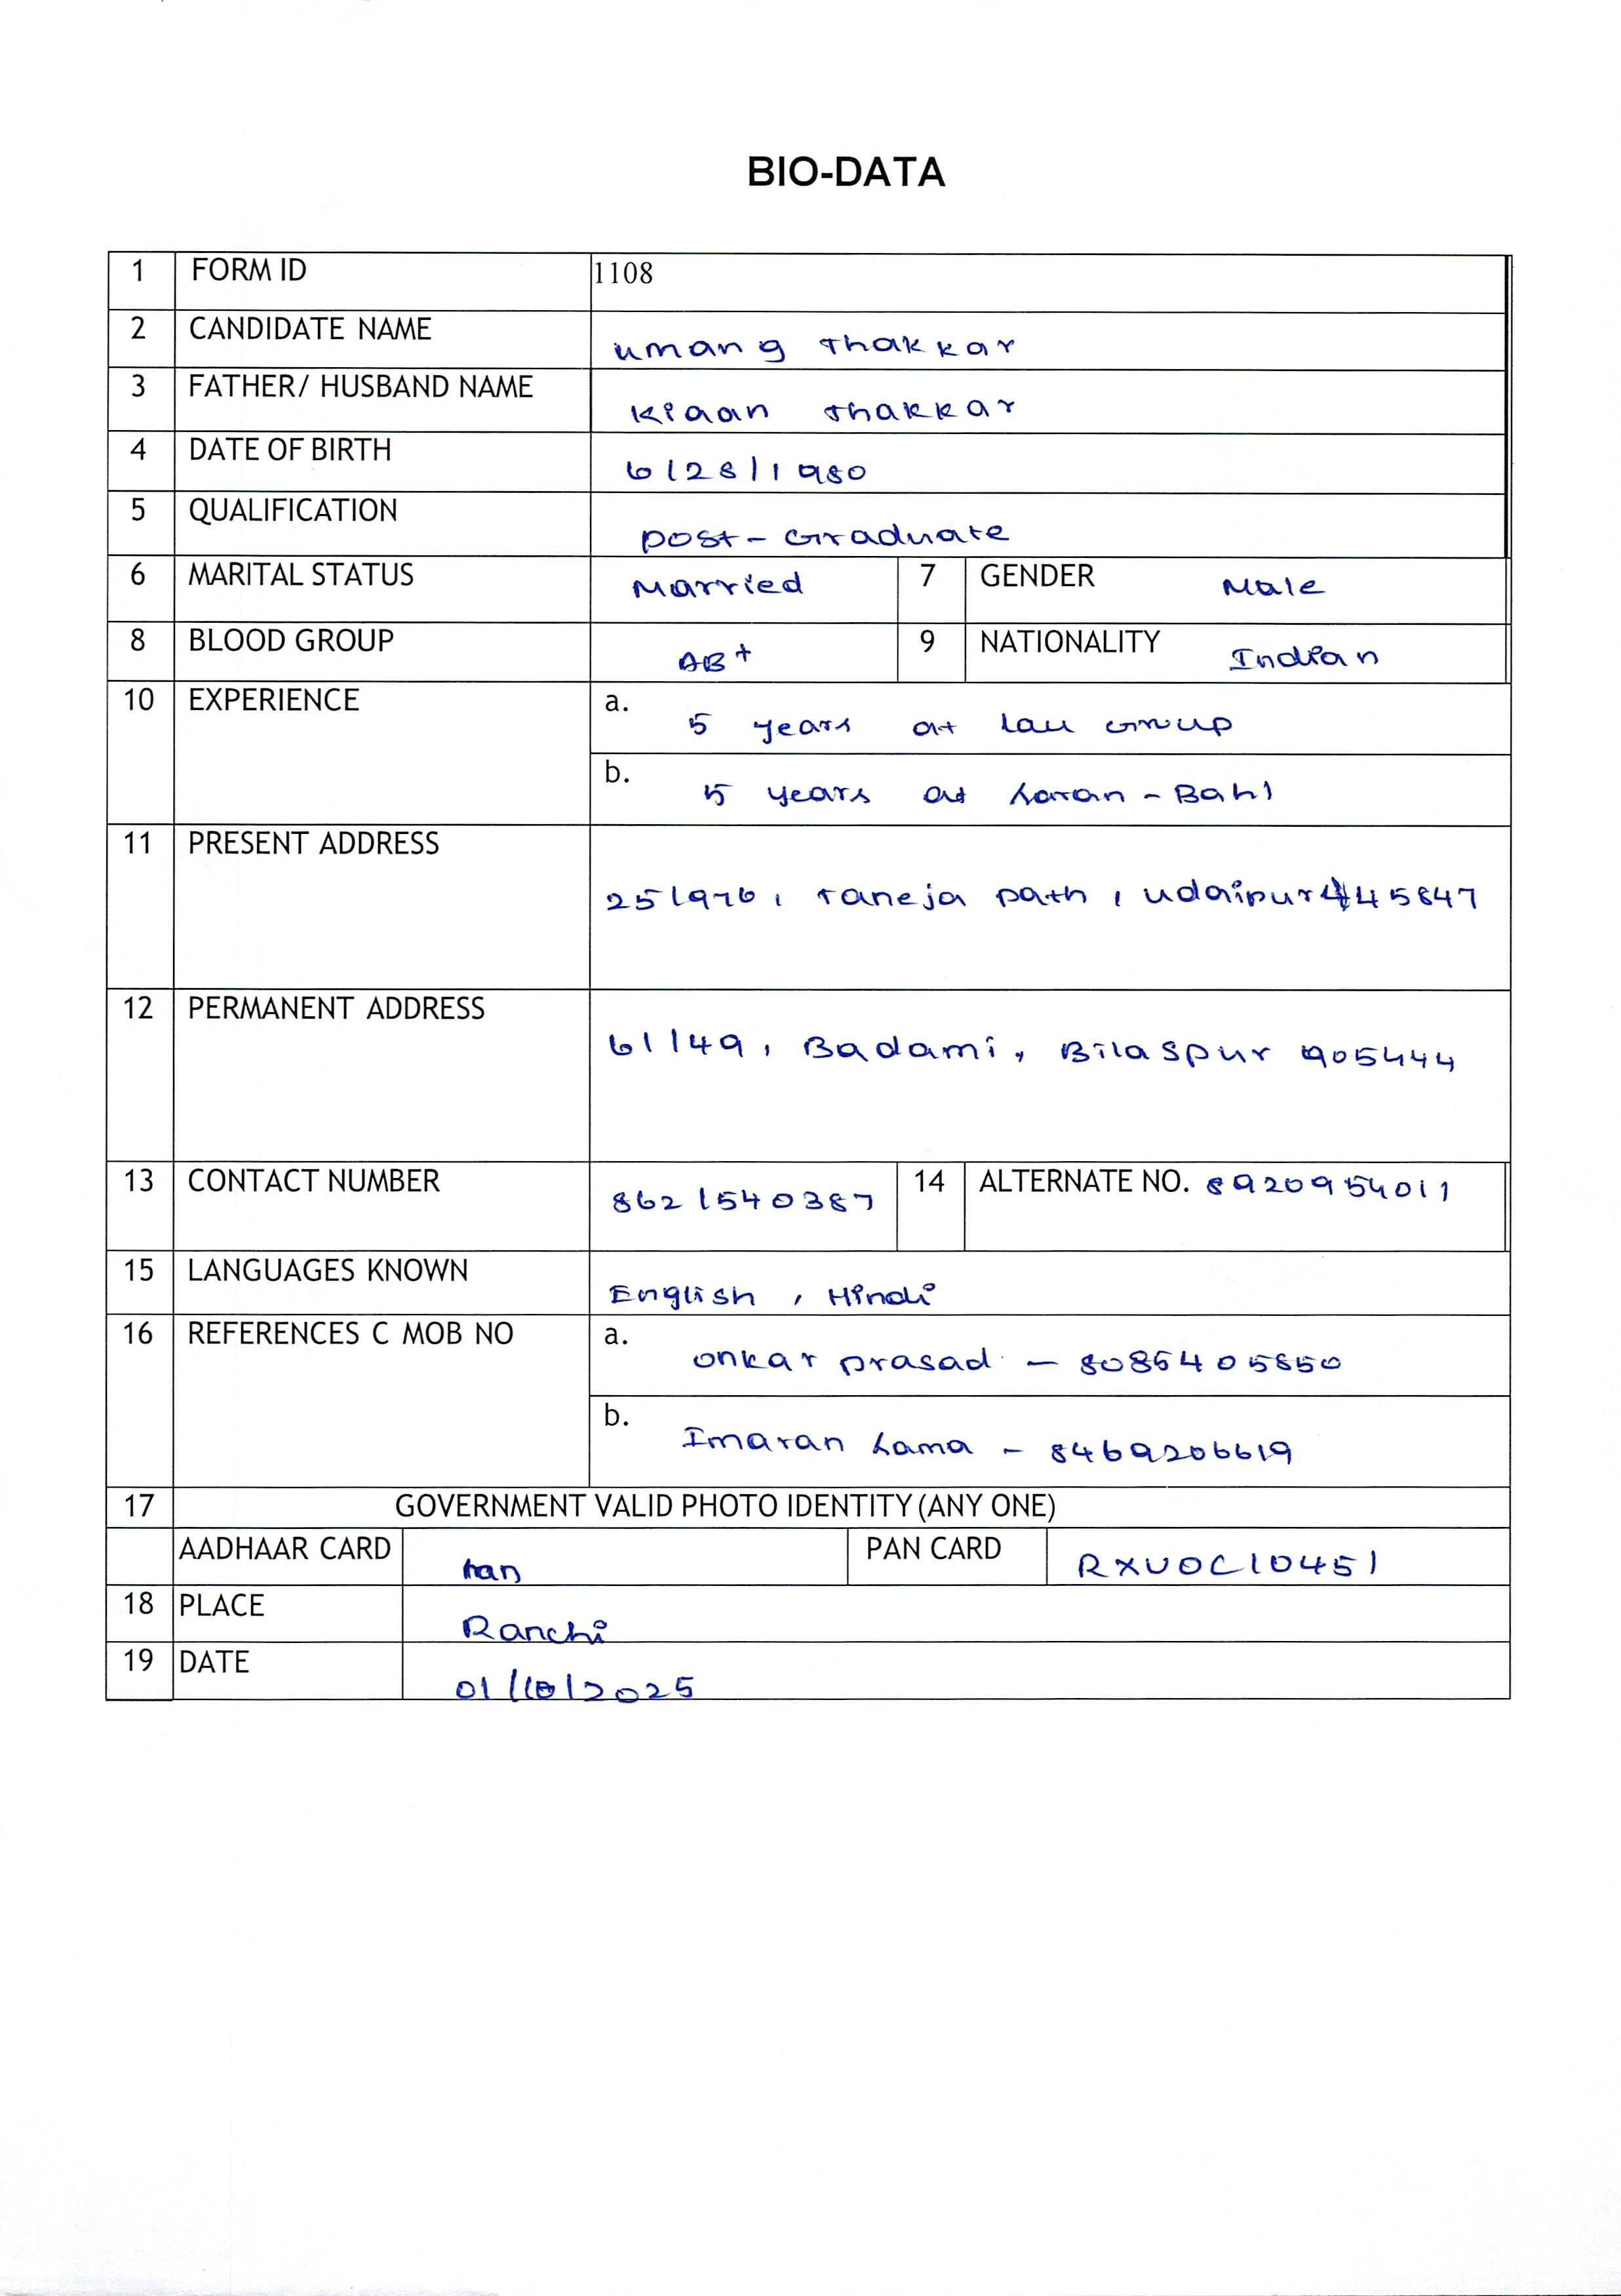 BIO-DATA
1 FORM ID 1108
2 CANDIDATE NAME Umang Thakkar
3 FATHER/ HUSBAND NAME Kiaan Thakkar
4 DATE OF BIRTH 6/28/1980
5 QUALIFICATION Post-Graduate
6 MARITAL STATUS Married 7 GENDER Male
8 BLOOD GROUP AB+ 9 NATIONALITY Indian
10 EXPERIENCE a. 5 years at Group
b. 5 years at
11 PRESENT ADDRESS Taneja path, Udaipur
12 PERMANENT ADDRESS 61/149, Badami, Bilaspur 905444
13 CONTACT NUMBER 8621540387 14 ALTERNATE NO. 8920954011
15 LANGUAGES KNOWN English, Hindi
16 REFERENCES C MOB NO a. Onkar prasad - 8085405850
b. Imaran Lama - 8469206619
17 GOVERNMENT VALID PHOTO IDENTITY (ANY ONE)
AADHAAR CARD PAN CARD RXUOC10451
18 PLACE Ranchi
19 DATE 01/10/2025